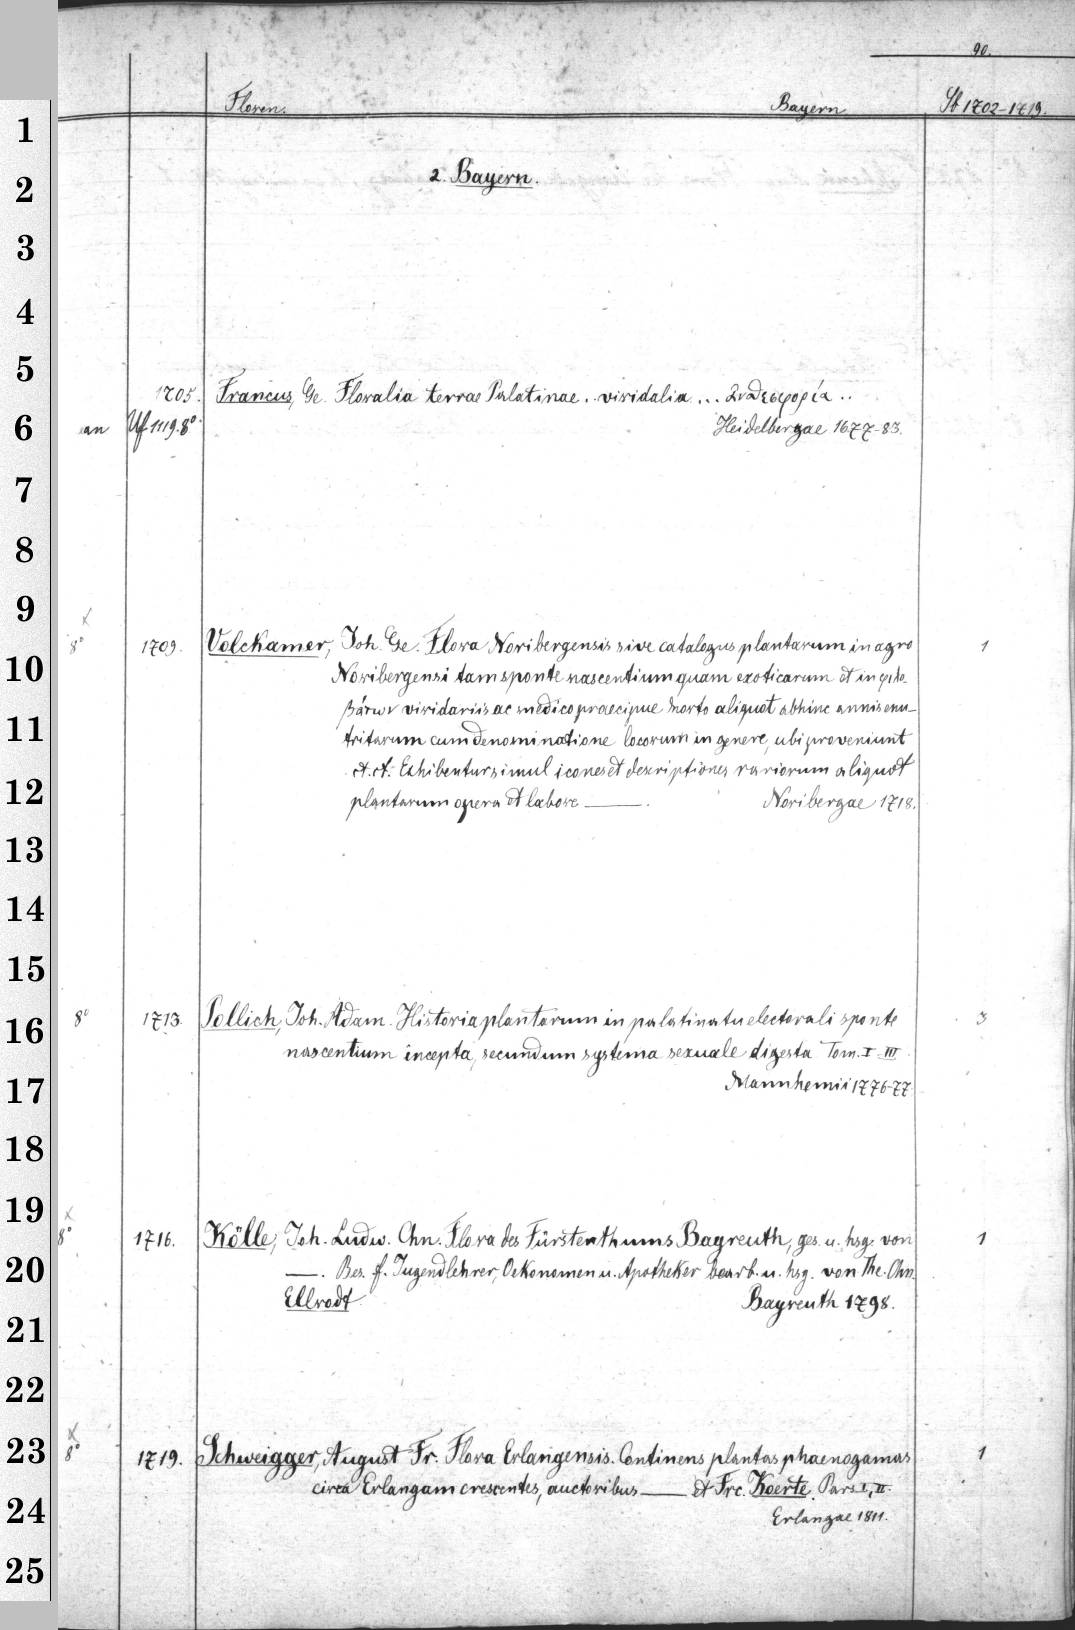 90.
Floren. Bayern Sb 1702-1719.
2. Bayern.
1705. Francus, Ge. Floralia terrae Palatinae .. viridalia ... Ἀνθεσφορία ..
an Uf 1119.8° Heidelbergae 1677-83.
x
8° 1709. Volckamer, Joh. Ge. Flora Noribergensis sive catalogus plantarum in agro 1
Noribergensi tam sponte nascentium quam exoticarum et in φιλο-
βάτων viridariis ac medico praecipue horto aliquot abhinc annis enu-
tritarum cum denominatione locorum in genere, ubi proveniunt
et. ct. Exhibentur simul icones et descriptiones rariorum aliquot
plantarum opera et labore ——. Noribergae 1718.
8° 1713. Pollich, Joh. Adam. Historia plantarum in palatinatu electorali sponte 3
nascentium incepta, secundum systema sexuale digesta Tom. I-III
Mannhemii 1776-77.
x
8° 1716. Kölle, Joh. Ludw. Chn. Flora des Fürstenthums Bayreuth, ges. u. hsg. von 1
——. Bes. f. Jugendlehrer, Oekonomen u. Apotheker bearb. u. hsg. von The. Chn.
Ellrodt Bayreuth 1798.
x
8° 1719. Schweigger, August Fr. Flora Erlangensis. Continens plantas phaenogamas 1
circa Erlangam crescentes, auctoribus —— et Frc. Koerte. Pars I, II.
Erlangae 1811.
1
2
3
4
5
6
7
8
9
10
11
12
13
14
15
16
17
18
19
20
21
22
23
24
25